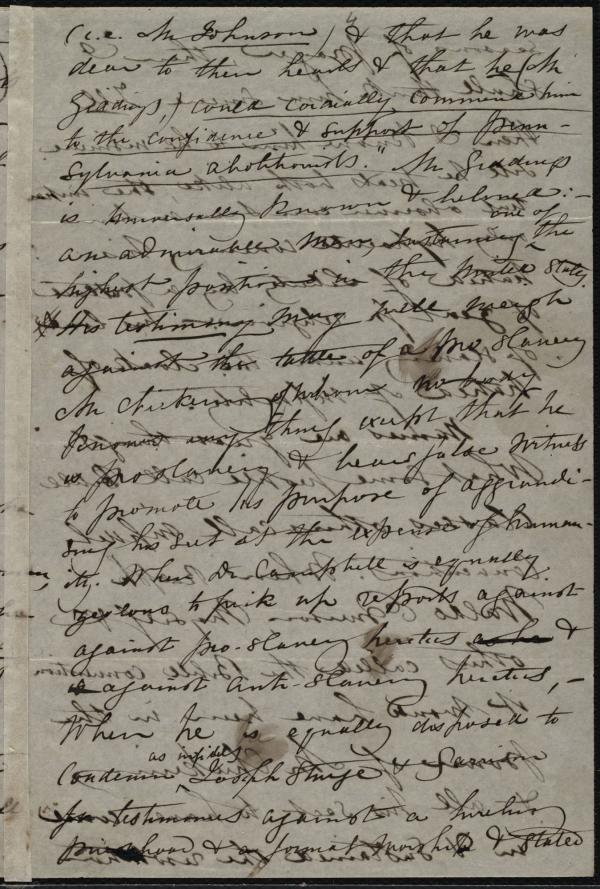 (i.e. Mr Johnson) & that he was
dear to their hearts & that he (Mr
Giddings,) could cordially commend him
to the confidence & support of Penn-
sylvania abolitionists." Mr Giddings
is universally known & beloved:-
an admirable man, sustaining one of the
highest positions in the United States.
His testimony may well weigh
against the tattle of a pro slavery
Mr Dickinson of whom no body
knows any thing except that he
is pro slavery & bears false witness
to promote his purpose of aggrandi-
sing his sect at the expense of human-
ity. When Dr Campbell is equally
zealous to pick up reports against
against pro-slavery heretics as he &
is against anti-slavery heretics, -
When he is equally disposed to
condemn as infidels Joseph Sturge & Garrison
for testimonies against a hireling
priesthood & a formal worship & stated